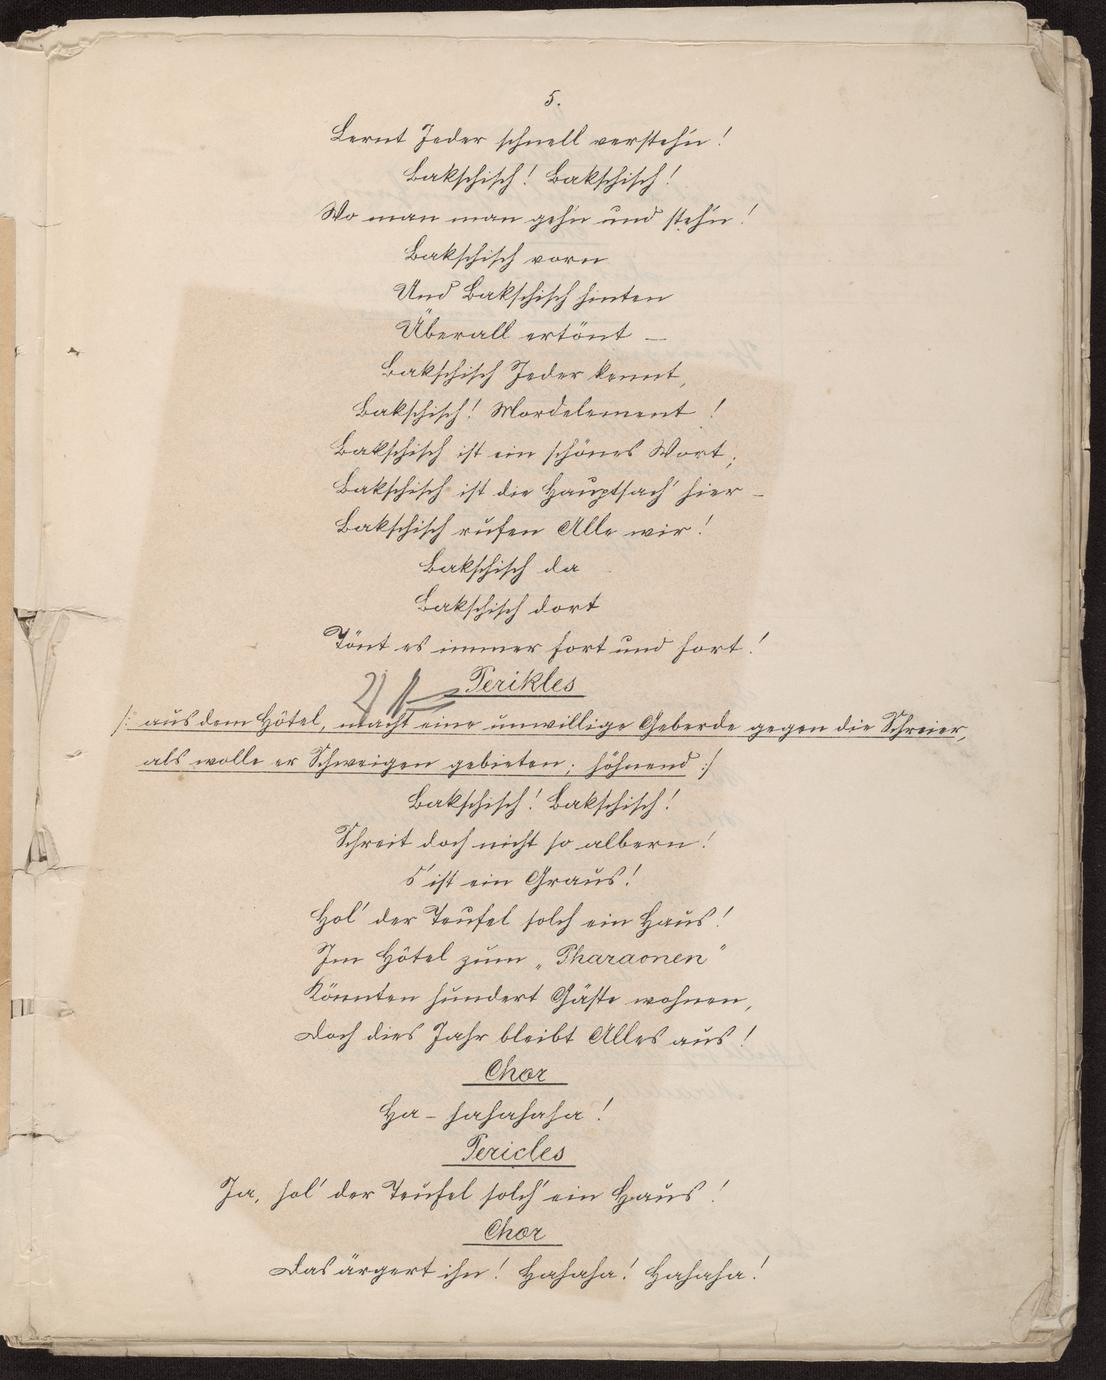 5.
Lernt Jeder schnell versteh'n!
Bakschisch! Bakschisch!
Wo man man geh'n und steh'n!
Bakschisch vorn
Und Bakschisch hinten
Überall ertönt –
Bakschisch Jeder kennt,
Bakschisch! Mordelement!
Bakschisch ist ein schönes Wort;
Bakschisch ist die Hauptsach' hier –
Bakschisch rufen Alle wir!
Bakschisch da
Bakschisch dort
Tönt es immer fort und fort!
Perikles
/: aus dem Hôtel, macht eine unwillige Geberde gegen die Schreier,
als wolle er Schweigen gebieten; höhnend :/
Bakschisch! Bakschisch!
Schreit doch nicht so albern!
S' ist ein Graus!
Hol' der Teufel solch ein Haus!
Im Hôtel zum „Pharaonen"
Könnten hundert Gäste wohnen,
Doch dies Jahr bleibt Alles aus!
Chor
Ha – hahahaha!
Pericles
Ja, hol' der Teufel solch' ein Haus!
Chor
Das ärgert ihn! Hahaha! Hahaha!